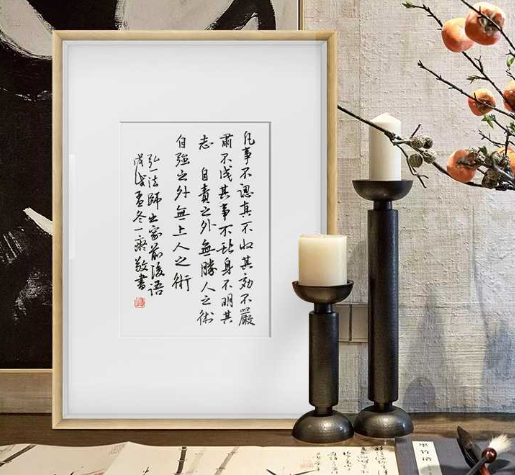 凡事不認真不收其効不嚴
肅不成其事不献身不明其
志 自責之外無勝人之術
自強之外無上人之術
弘一法師出家前後語
冬一齋敬書